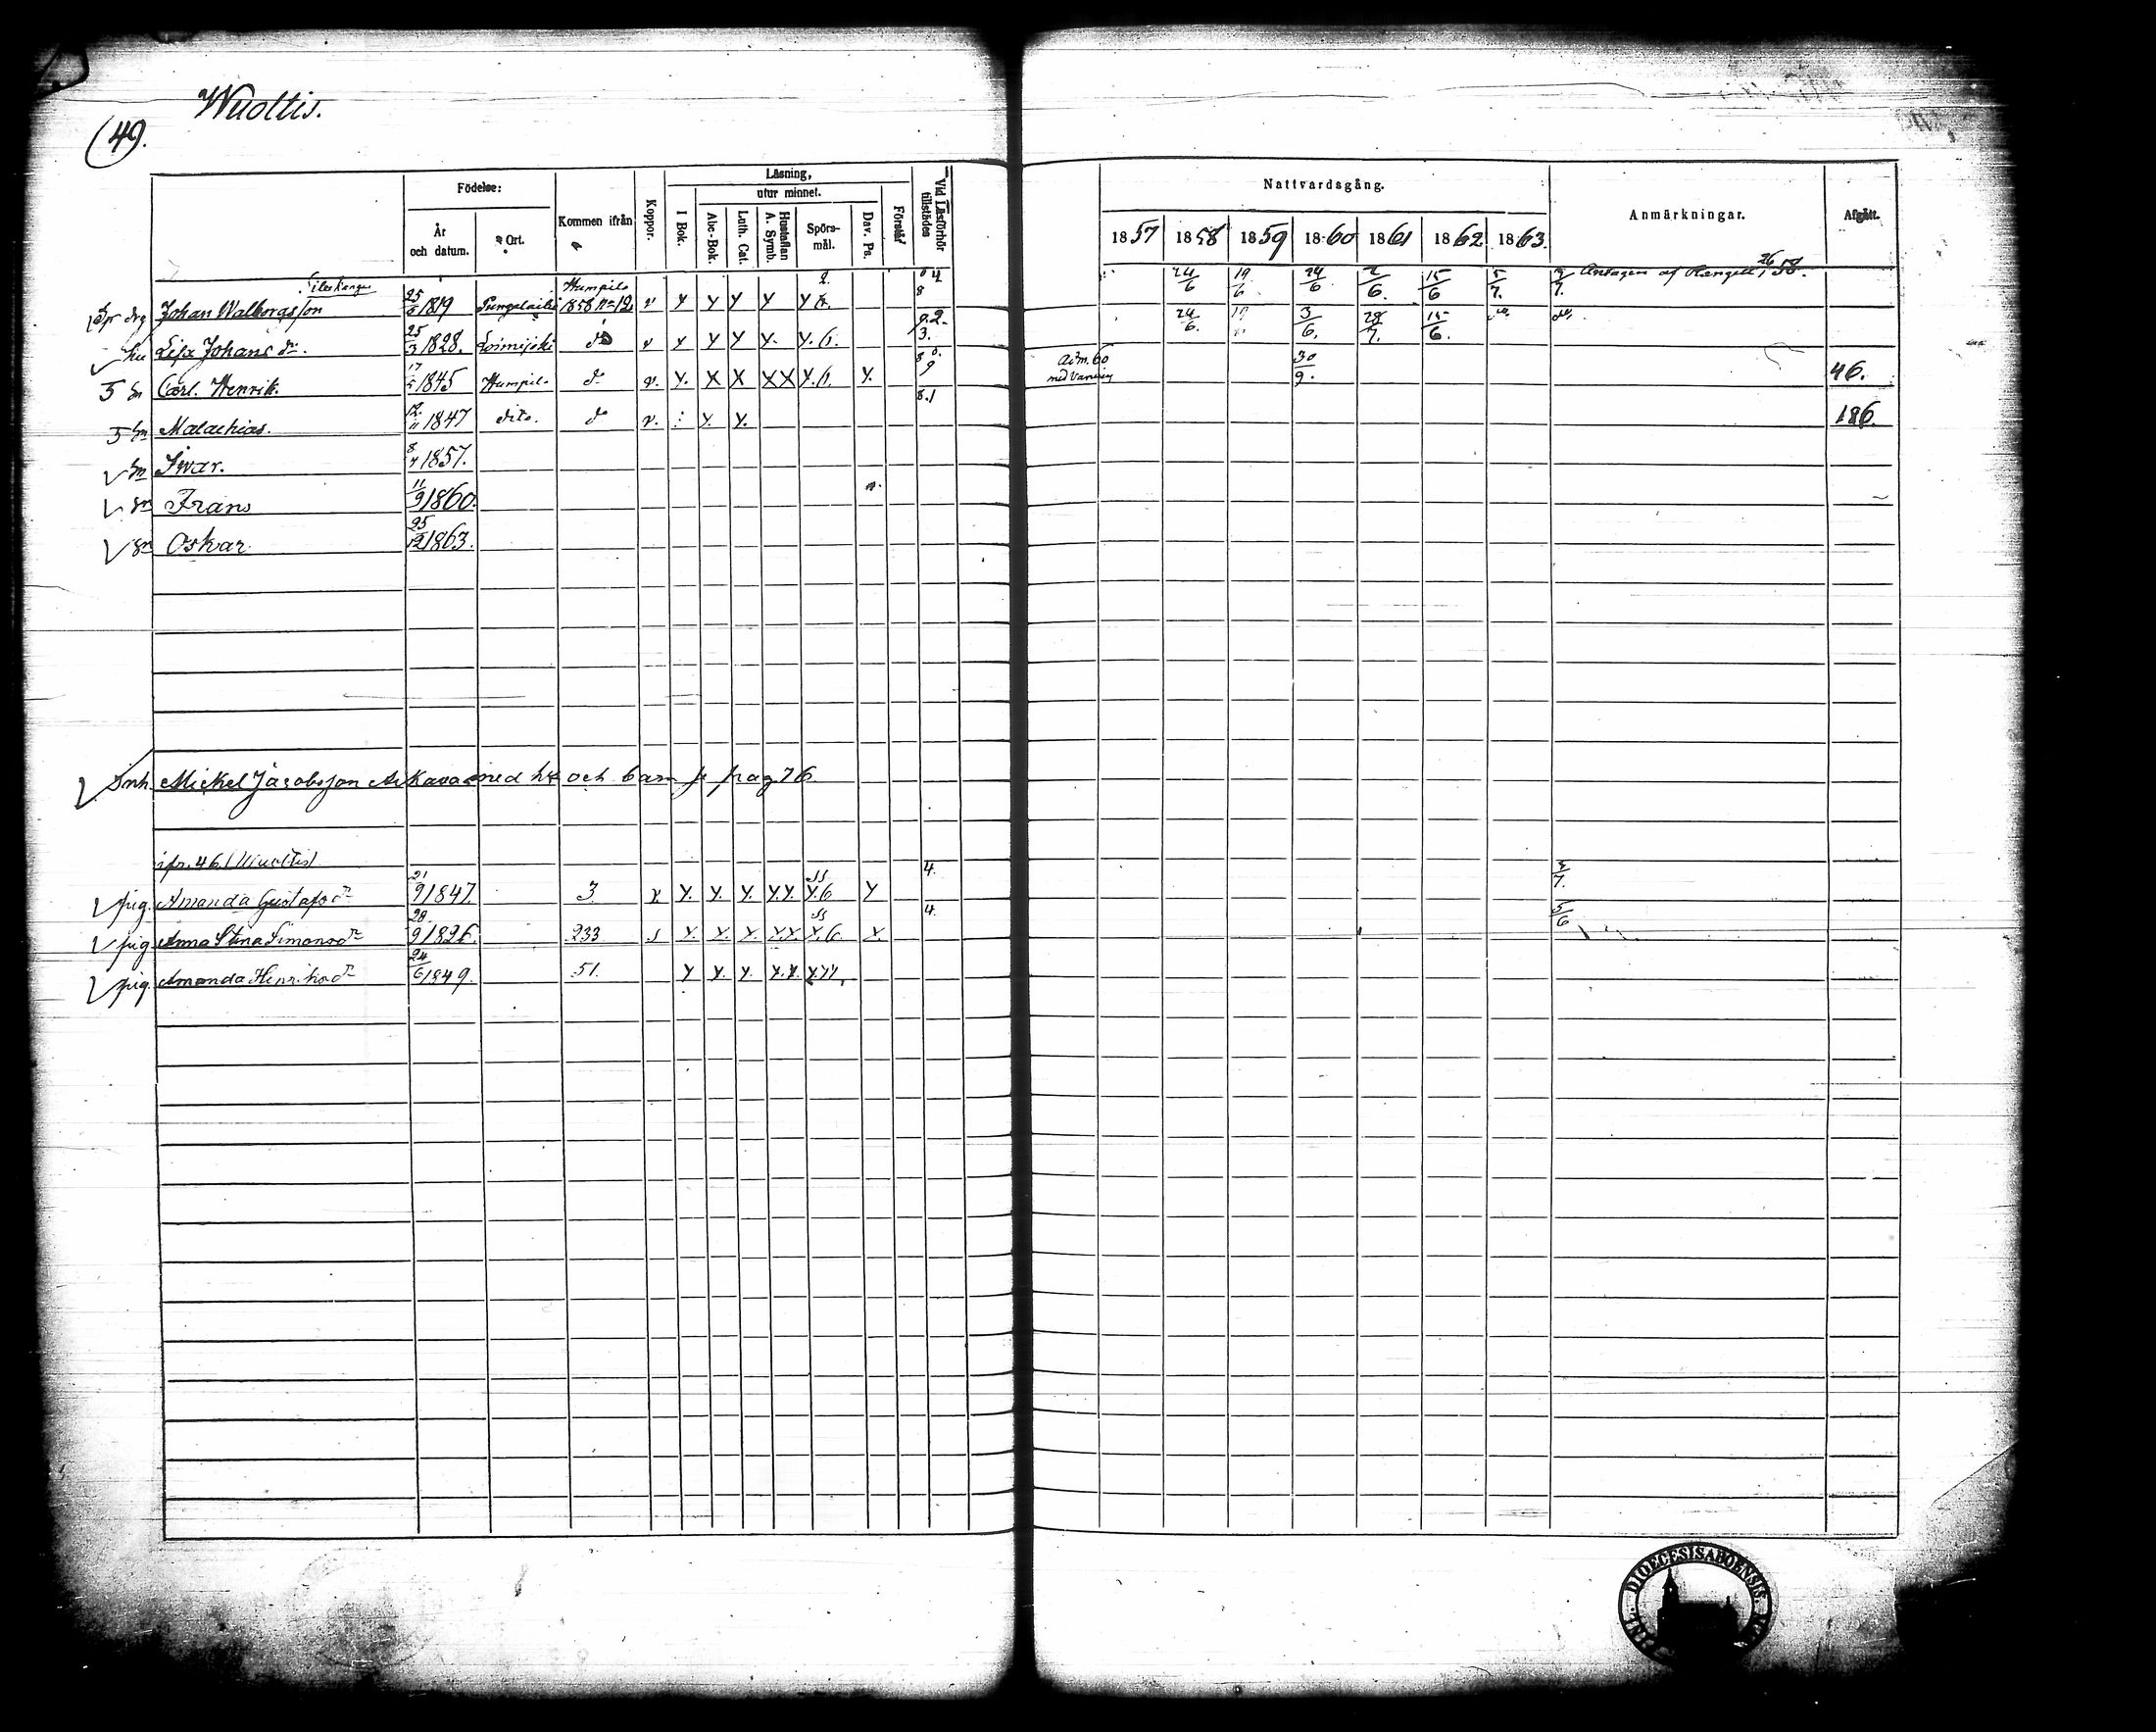 Wuoltis.
(49.
Födelse: Kommen ifrån Koppor. Läsning, Vid Läsförhör tillstädes
År och datum. Ort. I Bok. utur minnet. Förstår
Abc-Bok. Luth. Cat. Hustaflan A. Symb. Spörsmål. Dav. Ps.
Nattvardsgång. Anmärkningar. Afgått.
1857 1858 1859 1860 1861 1862 1863.
Humpila 2. 24/6 19/6 24/6 2/6. 15/6 5/7. Antagen af 26/1 58.
Johan Walborgsson 25 1819 1858 n=12 v y y y y y
hu Lisa Johans dr. 25/3 1828. Loimijoki do v y y y y. y. 6. 3. 24/6. 3/6. 28/7. 15/6. do. do.
sn Carl. Henrik. 17 1845 Humpila do v. y. x x xx y. 6. y. 9 Adm. 60 30/9. 46.
sn Malachias. 12/11 1847 dito. do v. y. y. 8.1 186.
sn Iwar. 8/4 1857.
sn Frans 11/9 1860.
sn Oskar. 25/12 1863.
Inh. Mickel Jacobsson med h och barn pag 76
46 (Wuoltis)
pig. Amanda Gustafsdr 21/9 1847. 3 v. y. y. y. y.y. y.6 y 4. 5/7.
pig. Anna Stina Simonsdr 28/9 1826. 233 s y. y. y. y.y. y.6. y. 4. 5/6
pig. Amanda Henriksdr 24/6 1849. 51. y y. y. y.y.
DIOECESIS ABOENSIS